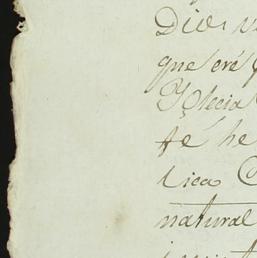 Dios
que eré
Yglecia
fé he
lica C
natural